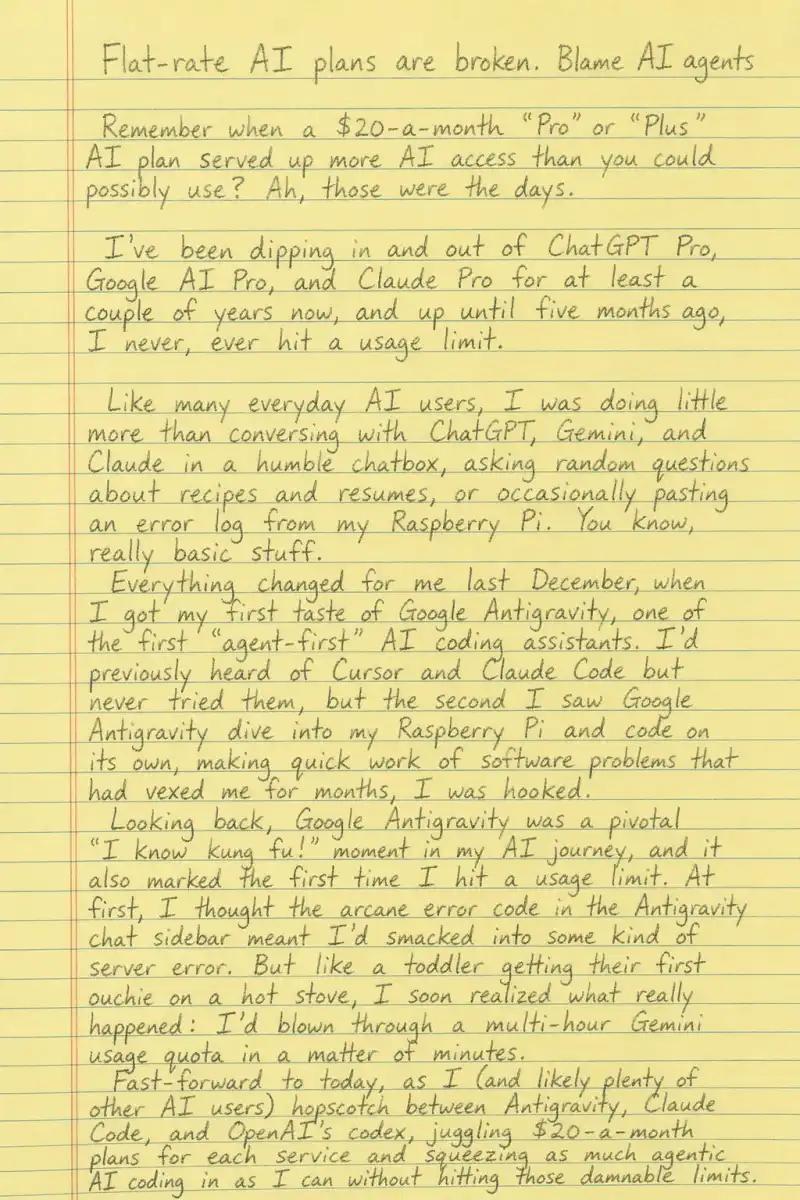 Flat-rate AI plans are broken. Blame AI agents
Remember when a $20-a-month “Pro” or “Plus”
AI plan served up more AI access than you could
possibly use? Ah, those were the days.
I've been dipping in and out of ChatGPT Pro,
Google AI Pro, and Claude Pro for at least a
couple of years now, and up until five months ago,
I never, ever hit a usage limit.
Like many everyday AI users, I was doing little
more than conversing with ChatGPT, Gemini, and
Claude in a humble chatbox, asking random questions
about recipes and resumes, or occasionally pasting
an error log from my Raspberry Pi. You know,
really basic stuff.
Everything changed for me last December, when
I got my first taste of Google Antigravity, one of
the first “agent-first” AI coding assistants. I'd
previously heard of Cursor and Claude Code but
never tried them, but the second I saw Google
Antigravity dive into my Raspberry Pi and code on
its own, making quick work of software problems that
had vexed me for months, I was hooked.
Looking back, Google Antigravity was a pivotal
“I know kung fu!” moment in my AI journey, and it
also marked the first time I hit a usage limit. At
first, I thought the arcane error code in the Antigravity
chat sidebar meant I'd smacked into some kind of
server error. But like a toddler getting their first
ouchie on a hot stove, I soon realized what really
happened: I'd blown through a multi-hour Gemini
usage quota in a matter of minutes.
Fast-forward to today, as I (and likely plenty of
other AI users) hopscotch between Antigravity, Claude
Code, and OpenAI's codex, juggling $20-a-month
plans for each service and squeezing as much agentic
AI coding in as I can without hitting those damnable limits.